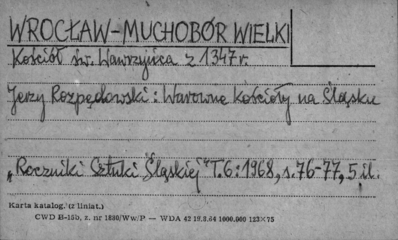 WROCŁAW-MUCHOBÓR WIELKI
Kościół św. Wawrzyńca z 1347r.
Jerzy Rozpędowski: Warowne kościoły na Śląsku
„Roczniki Sztuki Śląskiej" T.6:1968, s.76-77, 5 il.
Karta katalog. (z liniat.)
CWD H-15b, z. nr 1880/Ww/P — WDA 42 18.8.64 1000.000 123×75